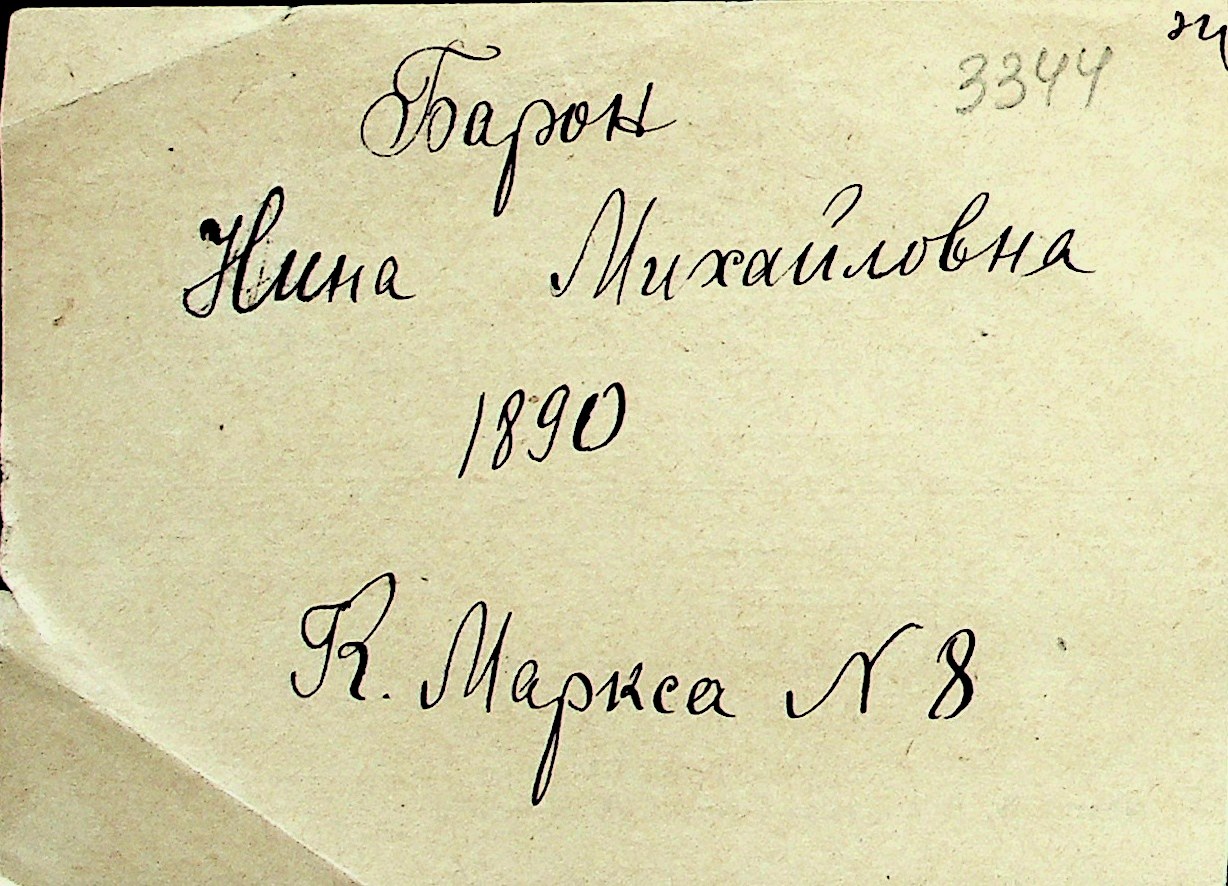 3344
Барон
Нина Михайловна
1890
К. Маркса N 8